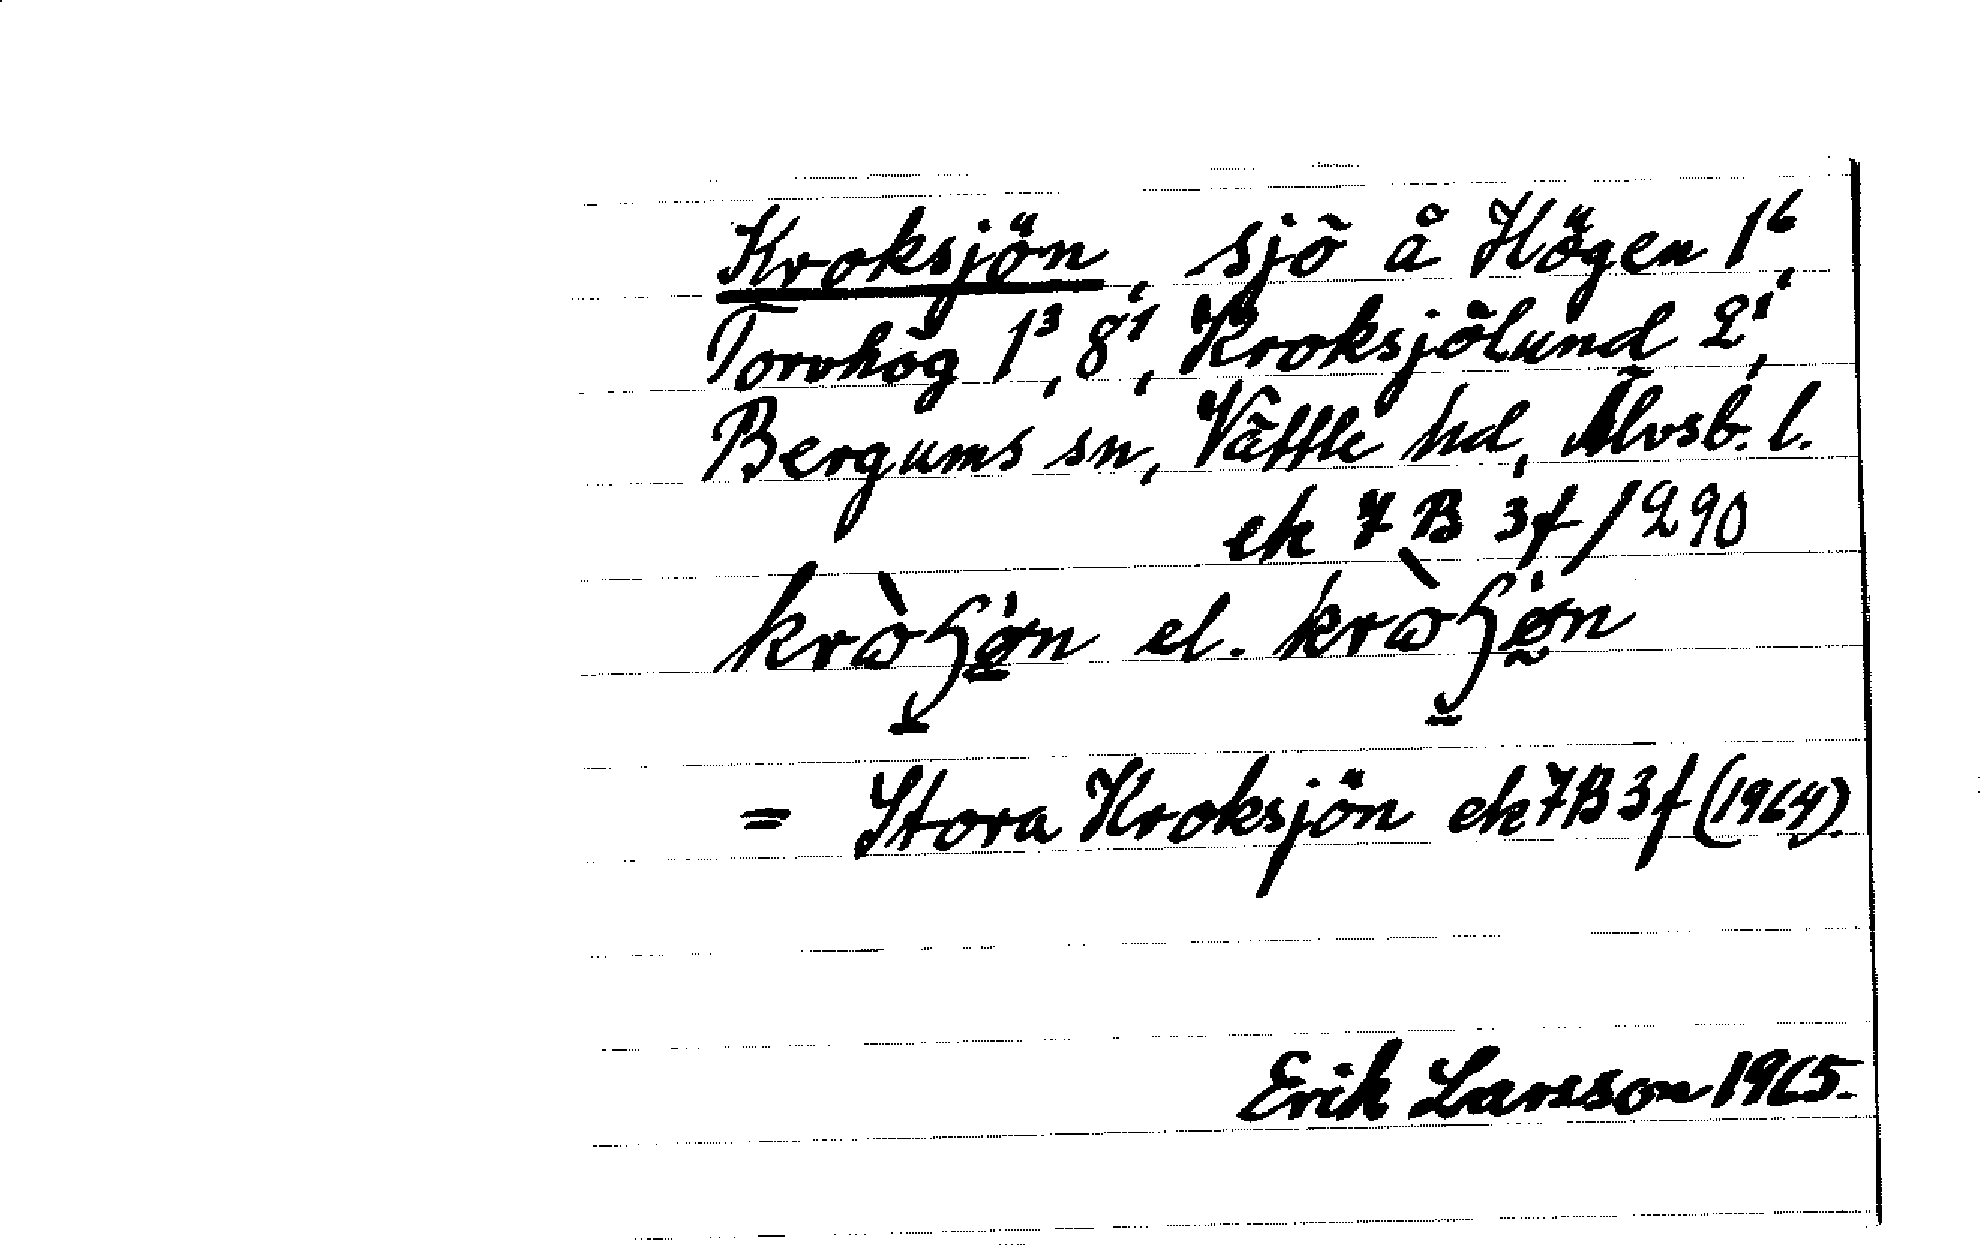 Kroksjön, sjö å Högen 1⁶,
Torvhög 1³, 8¹, Kroksjölund 2¹,
Bergums sn, Vättle hd, Älvsb. l.
ek 7 B 3f/290
el.
= Stora Kroksjön ek 7B 3f (1964).
Erik Larsson 1965.